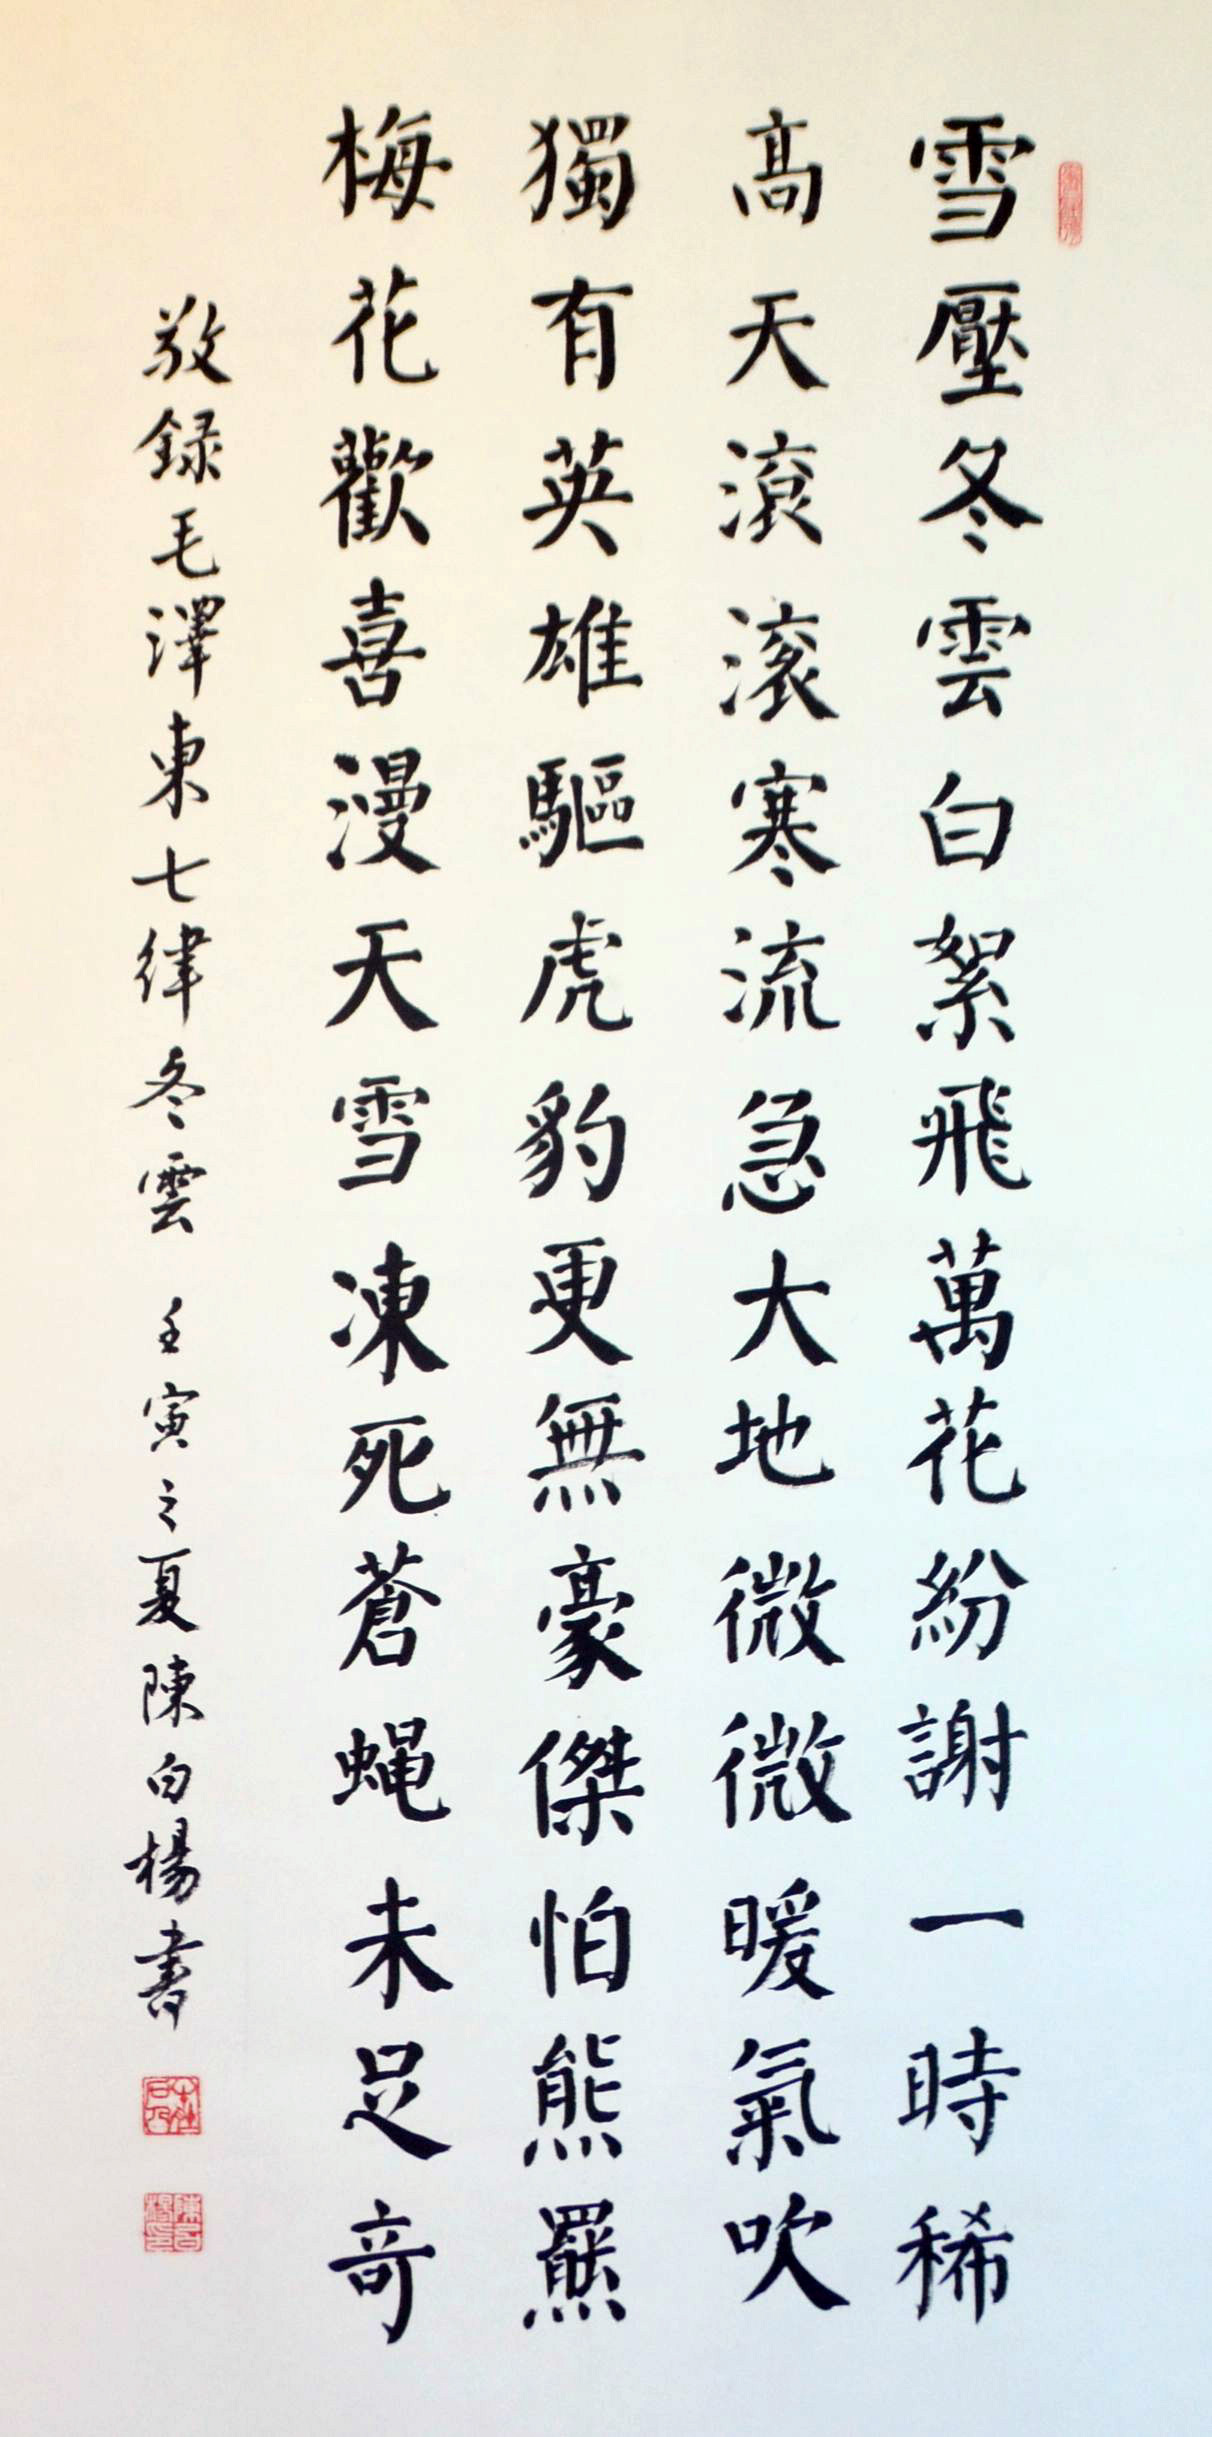 雪壓冬雲白絮飛萬花紛謝一時稀
高天滚滚寒流急大地微微暖氣吹
獨有英雄驅虎豹更無豪傑怕熊羆
梅花歡喜漫天雪凍死蒼蝇未足奇
敬録毛澤東七律冬雲 壬寅之夏陳白楊書